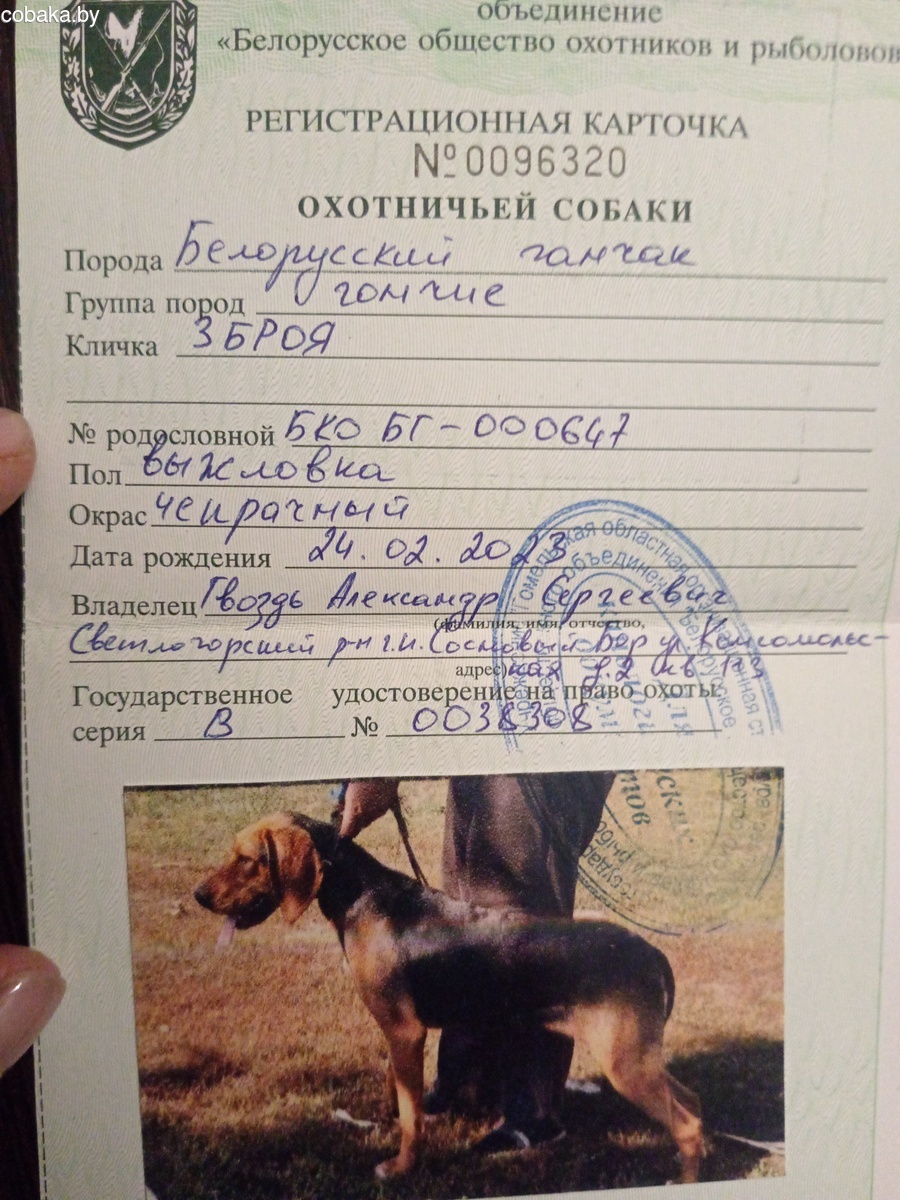 cobaka.by
объединение
«Белорусское общество охотников и рыболовов
РЕГИСТРАЦИОННАЯ КАРТОЧКА
№ 0096320
ОХОТНИЧЬЕЙ СОБАКИ
Порода Белорусский ганчак
Группа пород гончие
Кличка ЗБРОЯ
№ родословной БКО БГ-000647
Пол выжловка
Окрас чепрачный
Дата рождения 24.02.2023
Владелец Гвоздь Александр Сергеевич
(фамилия, имя, отчество,
Светлогорский р-н г.п. Сосновый Бор ул. Комсомольс-
адрес) кая д.2 кв.
Государственное удостоверение на право охоты:
серия В № 0038308
Гомельская областная